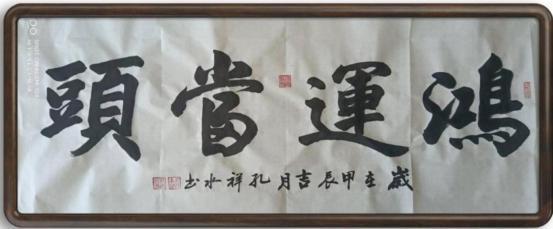 鴻運當頭
歲在甲辰吉月孔祥水书